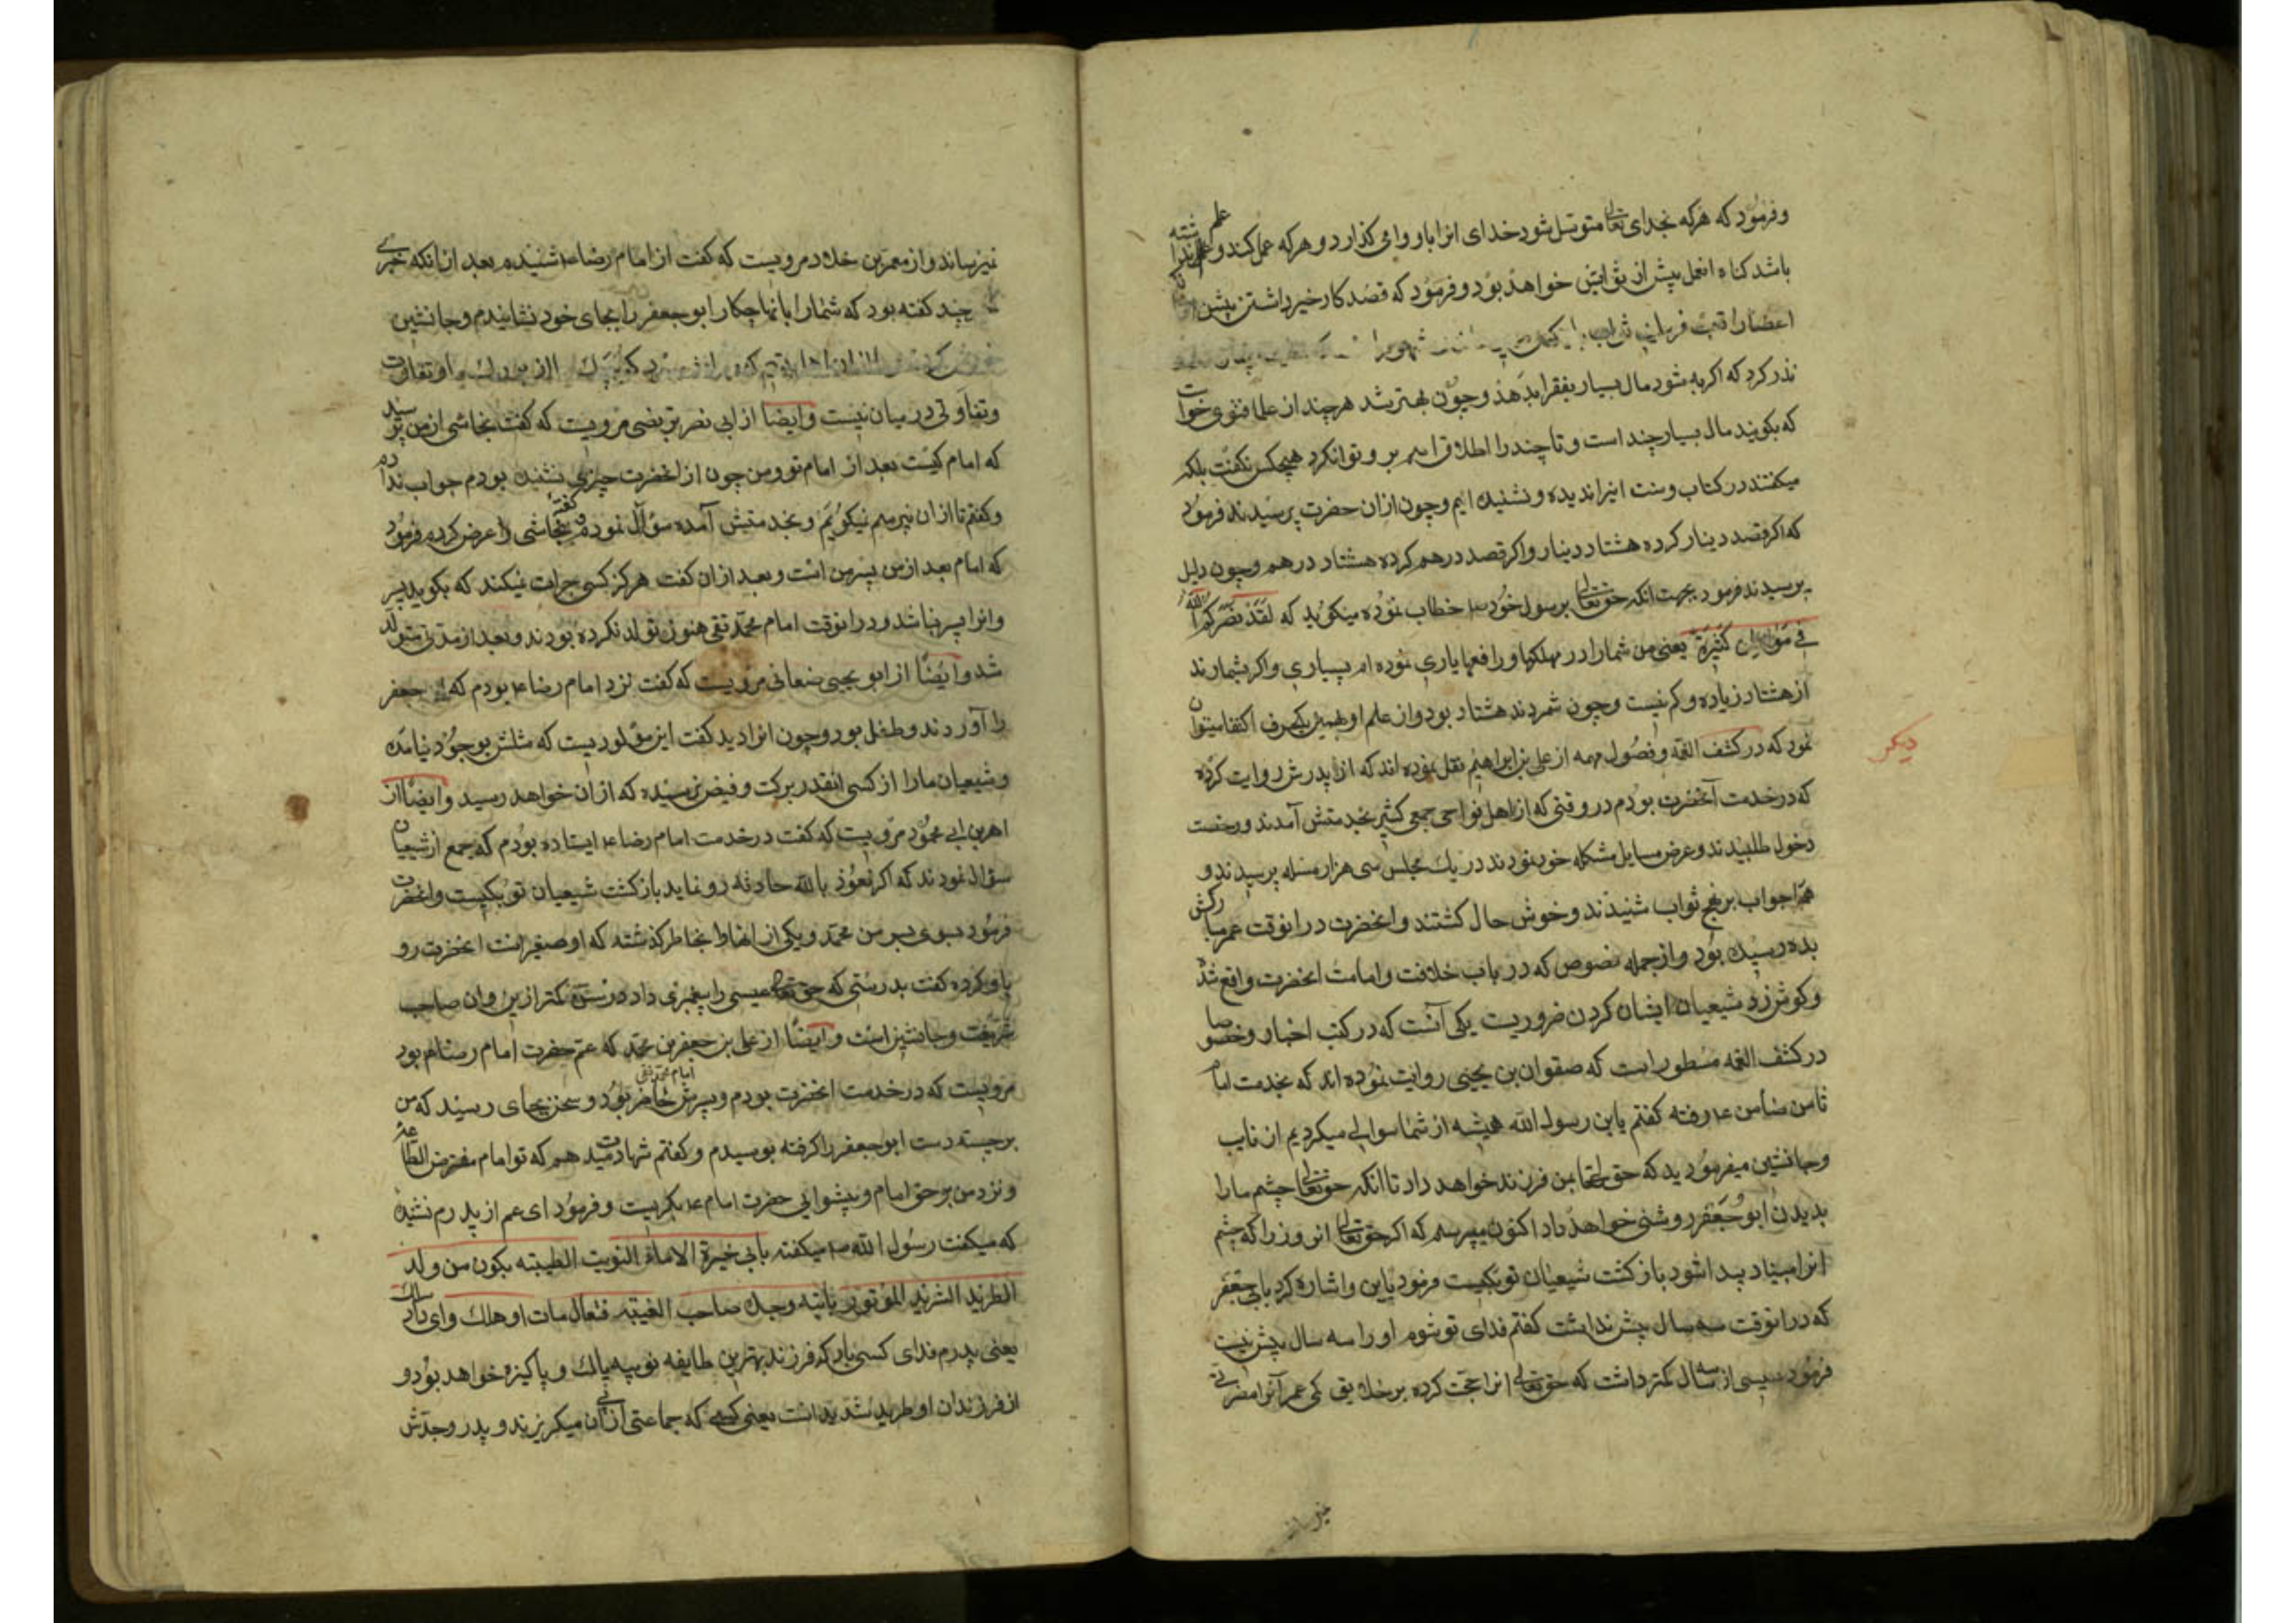 و فرمود که هرکه بخدای تعالی متوسل شود خدای انرا باو وا می کذارد و هرکه عمل کند و علم نداشته
باشد کناه انعمل بیش از ثوابش خواهد بود و فرمود که قصد کار خیر داشتن بیش
اعضارا
نذر کرد که اکر به شود مال بسیار بفقرا بدهد و چون بهتر شد هرچند از علما فتوی خواست
که بکویند مال بسیار چند است و تا چند را اطلاق اسم برو توان کرد هیچکس نکفت بلکه
میکفتند در کتاب و سنت اینرا ندیده و نشنیده ایم و چون ازان حضرت پرسیدند فرمود
که اکر قصد دینار کرده هشتاد دینار و اکر قصد درهم کرده هشتاد درهم و چون دلیل
پرسیدند فرمود بجهت انکه حق تعالی برسول خود ص خطاب نموده میکوید که لقد نصرکم الله
فی مواطن کثیرة یعنی من شما را در مهلکها و رافعها یاری نموده ام بسیاری و اکر بشمارند
از هشتاد زیاده و کم نیست و چون شمردند هشتاد بود و از علم او بهمین یکحرف اکتفا میتوان
نمود که در کشف الغمه و فصول مهمه از علی بن ابراهیم نقل نموده اند که از پدرش روایت کرده
دیکر
که در خدمت آنحضرت بودم در وقتی که از اهل نواحی جمعی کثیر بخدمتش آمدند و رخصت
دخول طلبیدند و عرض مسایل مشکله خود نمودند در یک مجلس سی هزار مسله پرسیدند و
همه را جواب بر نهج ثواب شنیدند و خوش حال کشتند و انحضرت درانوقت عمر مبارکش
بده رسیده بود و از جمله نصوص که در باب خلافت و امامت انحضرت واقع شد
و کوش زد شیعیان ایشان کردن ضروریست یکی آنست که در کتب اخبار و خصوصا
در کشف الغمه مسطور است که صفوان بن یحیی روایت نموده اند که بخدمت امام
ثامن ضامن ع رفته کفتم یابن رسول الله همیشه از شما سوالی میکردیم از نایب
و جانشین میفرمودید که حق تعالی بمن فرزند خواهد داد تا انکه حق تعالی چشم ما را
بدیدن ابو جعفر روشنی خواهد داد اکنون میپرسم که اکر حق تعالی انروز را که چشم
انرا مبیناد پیدا شود بازکشت شیعیان تو بکیست فرمود باین و اشاره کرد بابی جعفر
که درانوقت سه سال بیش نداشت کفتم فدای تو شوم او را سه سال بیش نیست
فرمود عیسی از سه سال کمتر داشت که حق تعالی انرا حجت کرده بر خلایق کمی عمر آنرا مضرتی
نیرساند و از معمر بن خلاد مرویست که کفت از امام رضا ع شنیدم بعد ازانکه خبری
چند کفته بود که شما را بانها چکار ابو جعفر را بجای خود نشانیدم و جانشین
خودش کردم
و تفاوتی در میان نیست و ایضا از ابی نصر بزنضی مرویست که کفت نجاشی از من پرسید
که امام کیست بعد از امام تو و من چون از انحضرت چیزی نشنیده بودم جواب ندادم
و کفتم تا ازان نپرسم نیکویم و بخدمتش آمده سؤال نمودم کفته نجاشی را عرض کردم فرمود
که امام بعد از من پسر من است و بعد ازان کفت هرکز کسی جرات نیکند که بکوید پسر
و انرا پسر نباشد و درانوقت امام محمد تقی هنوز تولد نکرده بودند و بعد از مدتی متولد
شد و ایضا از ابو یحیی صنعانی مرویست که کفت نزد امام رضا ع بودم که ابو جعفر
را آوردند و طفل بود و چون انرا دید کفت این مولودیست که مثلش بوجود نیامده
و شیعیان ما را از کسی انقدر برکت و فیض نرسیده که ازان خواهد رسید و ایضا از
اهرین ابی محمود مرویست که کفت در خدمت امام رضا ع ایستاده بودم که جمع از شیعیان
سؤال نمودند که اکر نعوذ بالله حادثه رو نماید بازکشت شیعیان تو بکیست و انحضرت
فرمود بسوی پسر من محمد و یکی از انها را بخاطر کذشته که او صغیر است انحضرت رو
باو کرده کفت بدرستی که حق تعالی عیسی را پیغمبری داد در سن کمتر ازین و ان صاحب
شریعت و جانشین است و ایضا از علی بن جعفر بن محمد که عم حضرت امام رضا ع بود
مرویست که در خدمت انحضرت بودم و پسرش امام محمد تقی حاضر بود و سخن بجای رسید که من
برجسته دست ابو جعفر را کرفته بوسیدم و کفتم شهادت میدهم که تو امام مفترض الطاعه
و نزد من بر حق امام و پیشوایی حضرت امام ع بکریست و فرمود ای عم از پدرم نشنیده
که میکفت رسول الله ص میکفته بابی خیرة الاماء النوبیت الطیبته یکون من ولد
الطرید الشرید الموتور بابیه وجده صاحب الغیبته فتعال مات او هلک و ای واد سالک
یعنی پدرم فدای کسی باد که فرزند بهترین طایفه نوبیه پاک و پاکیزه خواهد بود و
از فرزندان او طرید شدید است یعنی کسی که جماعتی ازان میکریزند و پدر و جدش